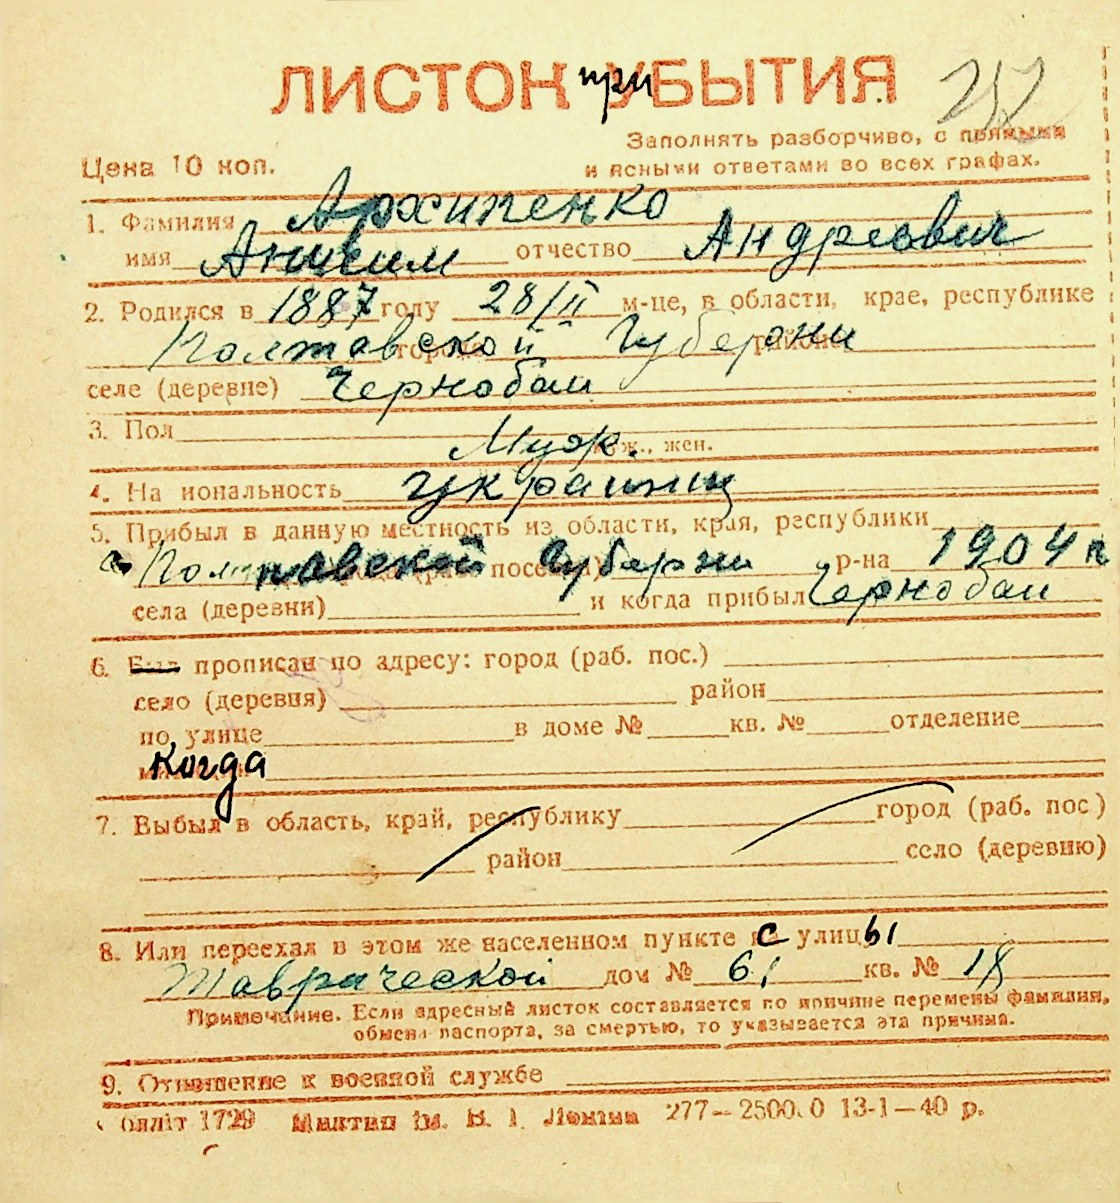 ЛИСТОК при УБЫТИЯ 252
Заполнять разборчиво, с прямыми
Цена 10 коп. и ясными ответами во всех графах.
1. Фамилия Архипенко
имя отчество Андреевич
2. Родился в 1887 году 28/II м-це, в области, крае, республике
Полтавской города Губерни района
селе (деревне) Чернобаи
3. Пол Муж. муж., жен.
4. Национальность украинец
5. Прибыл в данную местность из области, края, республики
Полтавской Губерни р-на 1904 г
села (деревни) и когда прибыл Чернобаи
6. Был прописан по адресу: город (раб. пос.)
село (деревня) район
по улице в доме № кв. № отделение
Когда
7. Выбыл в область, край, республику город (раб. пос.)
район село (деревню)
8. Или переехал в этом же населенном пункте с улицы
Таврической дом № 61 кв. № 18
Примечание. Если адресный листок составляется по причине перемены фамилии,
обмена паспорта, за смертью, то указывается эта причина.
9. Отношение к военной службе
1729 ім. В. І. Леніна 277—25000 13-1—40 р.